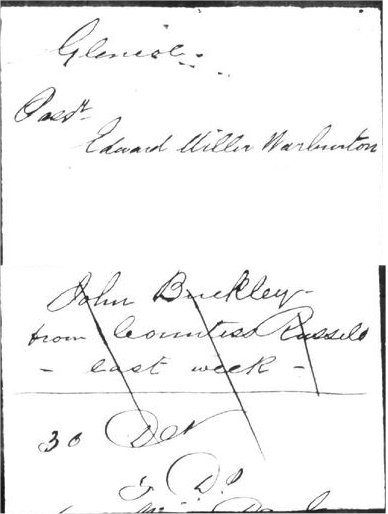 Glenisle
Passr
Edward Miller Warburton
John Buckley -
from Countess Russell
- last week -
30 Det
D.o